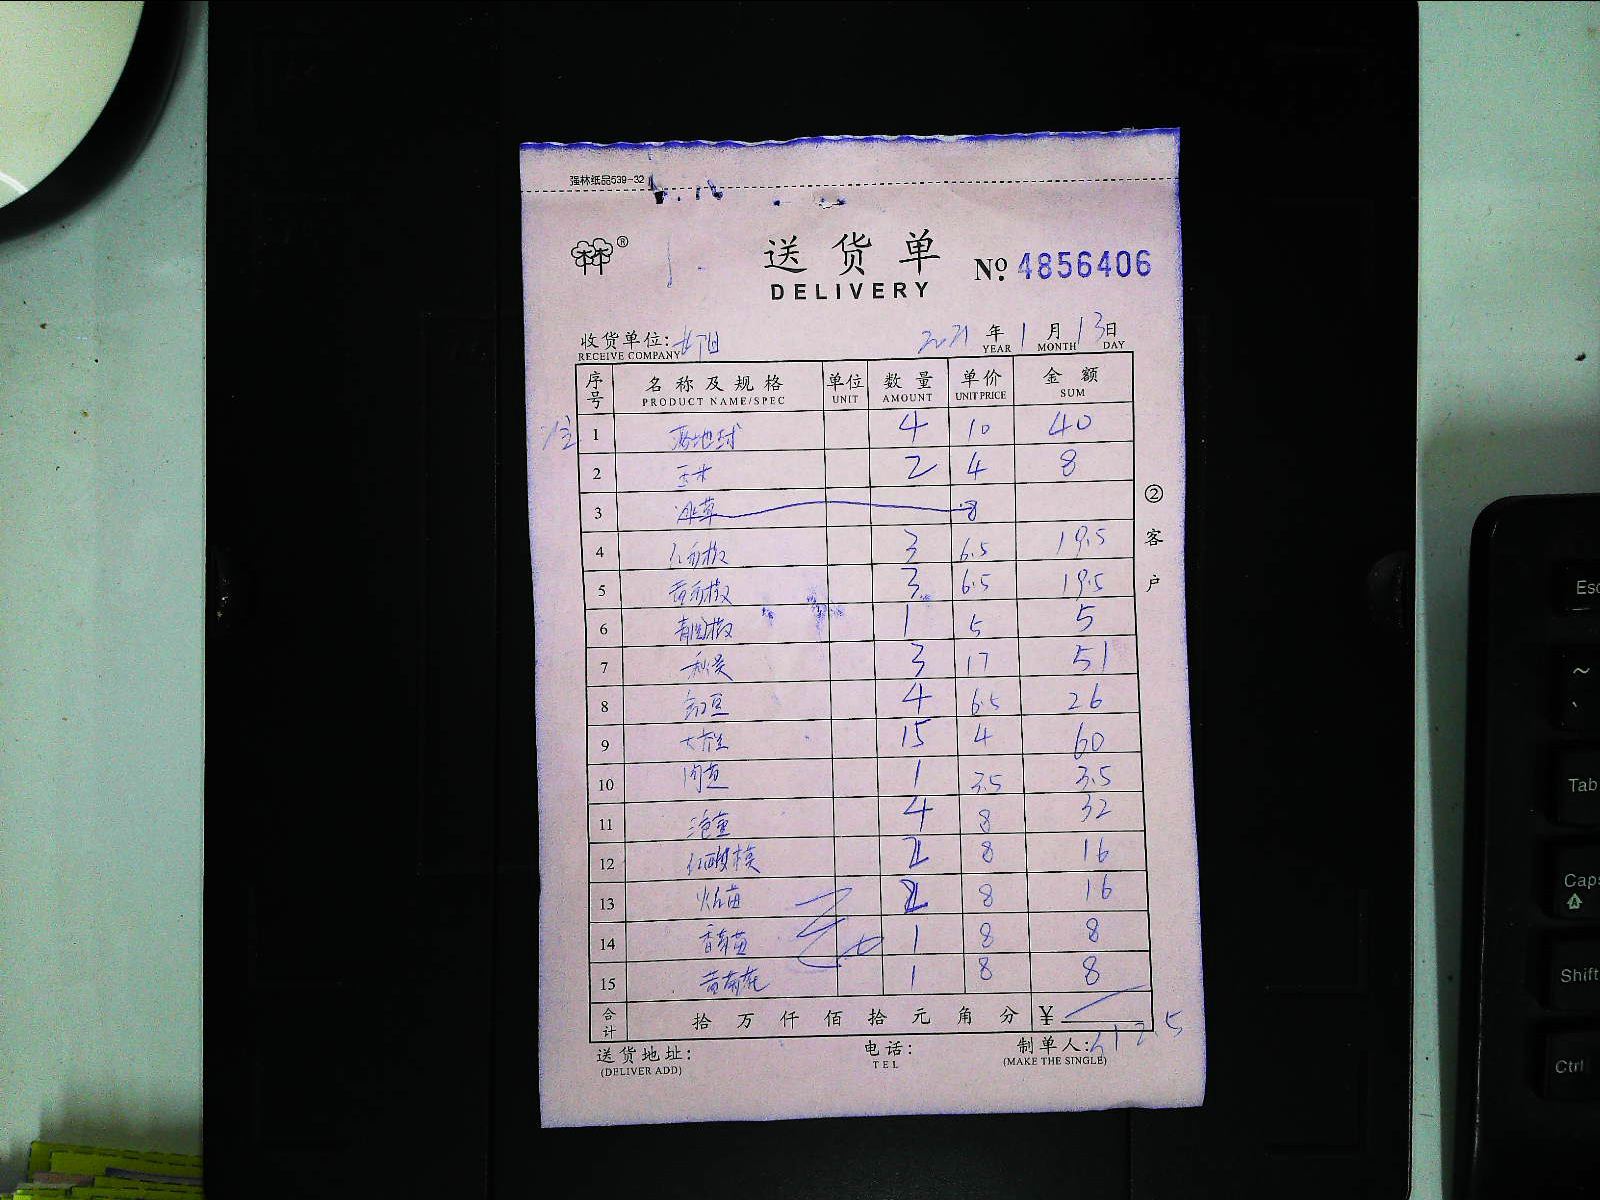 强林纸品539-32
®
送货单
DELIVERY
№ 4856406
收货单位:
RECEIVE COMPANY
2021 年 1 月 13 日
YEAR MONTH DAY
序号 名称及规格 单位 数量 单价 金额
PRODUCT NAME/SPEC UNIT AMOUNT UNIT PRICE SUM
1 4 10 40
2 玉米 2 4 8
3 冰草 8
4 红彩椒 3 6.5 19.5
5 黄彩椒 3 6.5 19.5
6 青圆椒 1 5 5
7 秋葵 3 17 51
8 4 6.5 26
9 15 4 60
10 1 3.5 3.5
11 4 8 32
12 2 8 16
13 2 8 16
14 1 8 8
15 1 8 8
合计 拾万仟佰拾元角分 ¥
送货地址:
(DELIVER ADD)
电话:
TEL
制单人:
(MAKE THE SINGLE)
②客户
Esc
~
`
Tab
Caps
Shift
Ctrl